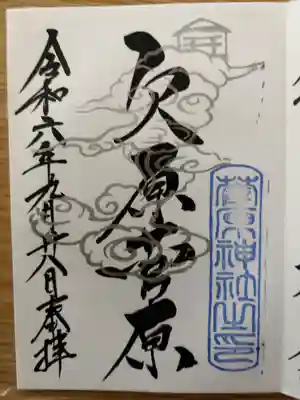 菅原神社之印
久原菅原
令和六年九月廿八日奉拝